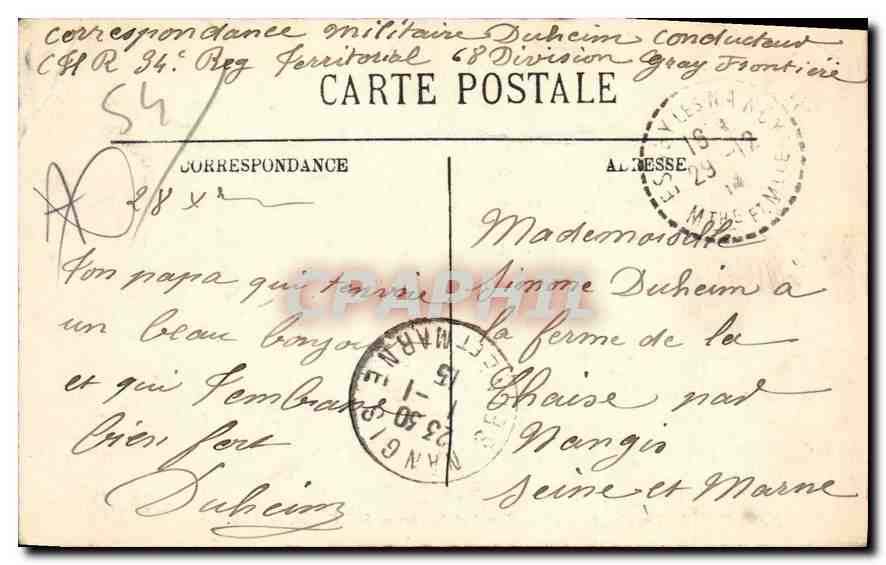 Correspondance Militaire Duheim Conducteur
CHR 34e Reg Territorial 68 Division Gray Frontière
CARTE POSTALE
54
CORRESPONDANCE
ADRESSE
ESSEY LES NANCY
16
29 -12
14
MTHE ET MLLE
28 Xbre
Mademoiselle
Ton papa qui t'envoie
Simone Duheim à
un beau bonjour
la ferme de la
et qui t'embrasse
Chaise par
bien fort
Nangis
Duheim
Seine et Marne
NANGIS
SEINE ET MARNE
23 30
1 -1
15
CPAPHIL